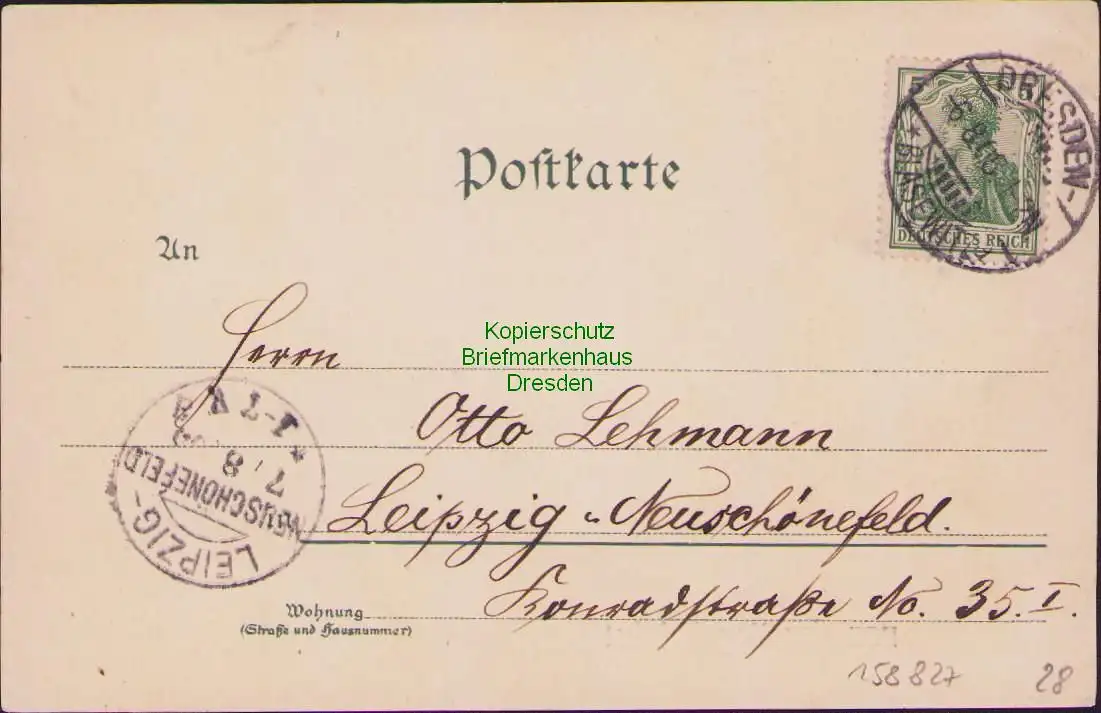 Postkarte
5 5
DEUTSCHES REICH
DRESDEN-
* BLASEWITZ
An
Herrn
Kopierschutz
Briefmarkenhaus
Dresden
Otto Lehmann
Leipzig-Neuschönefeld.
LEIPZIG-
NEUSCHÖNEFELD
7 8
Wohnung
(Straße und Hausnummer)
Konradstraße No. 35. I.
158827
28